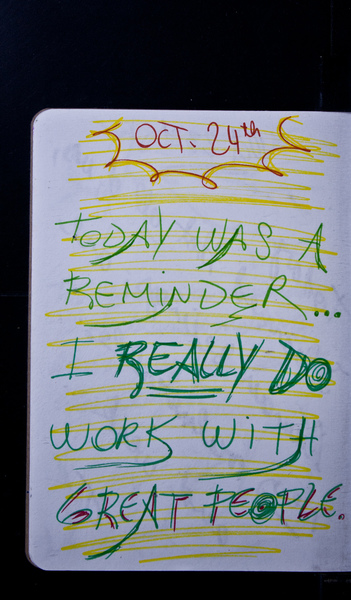 OCT. 24th
TODAY WAS A
REMINDER...
I REALLY DO
WORK WITH
GREAT PEOPLE.